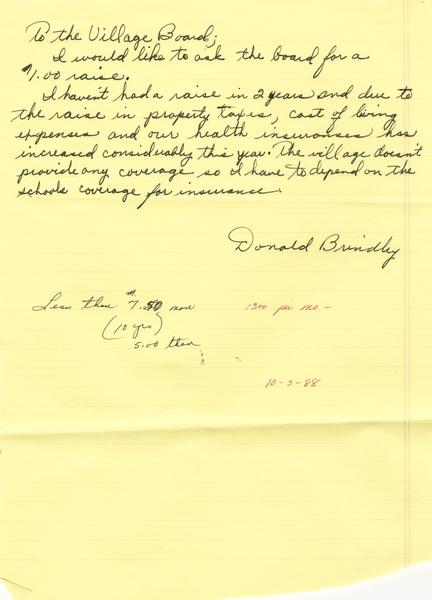 To the Village Board;
I would like to ask the board for a
1.00 raise.
I haven't had a raise in 2 years and due to
the raise in property taxes, cost of living
expenses and our health insuranses has
increased considerably this year. The village doesn't
provide any coverage so I have to depend on the
schools coverage for insurance.
Donald Brindley
Less than 7.50 now
1300 per mo -
(10 yrs)
5.00 then
10-3-88